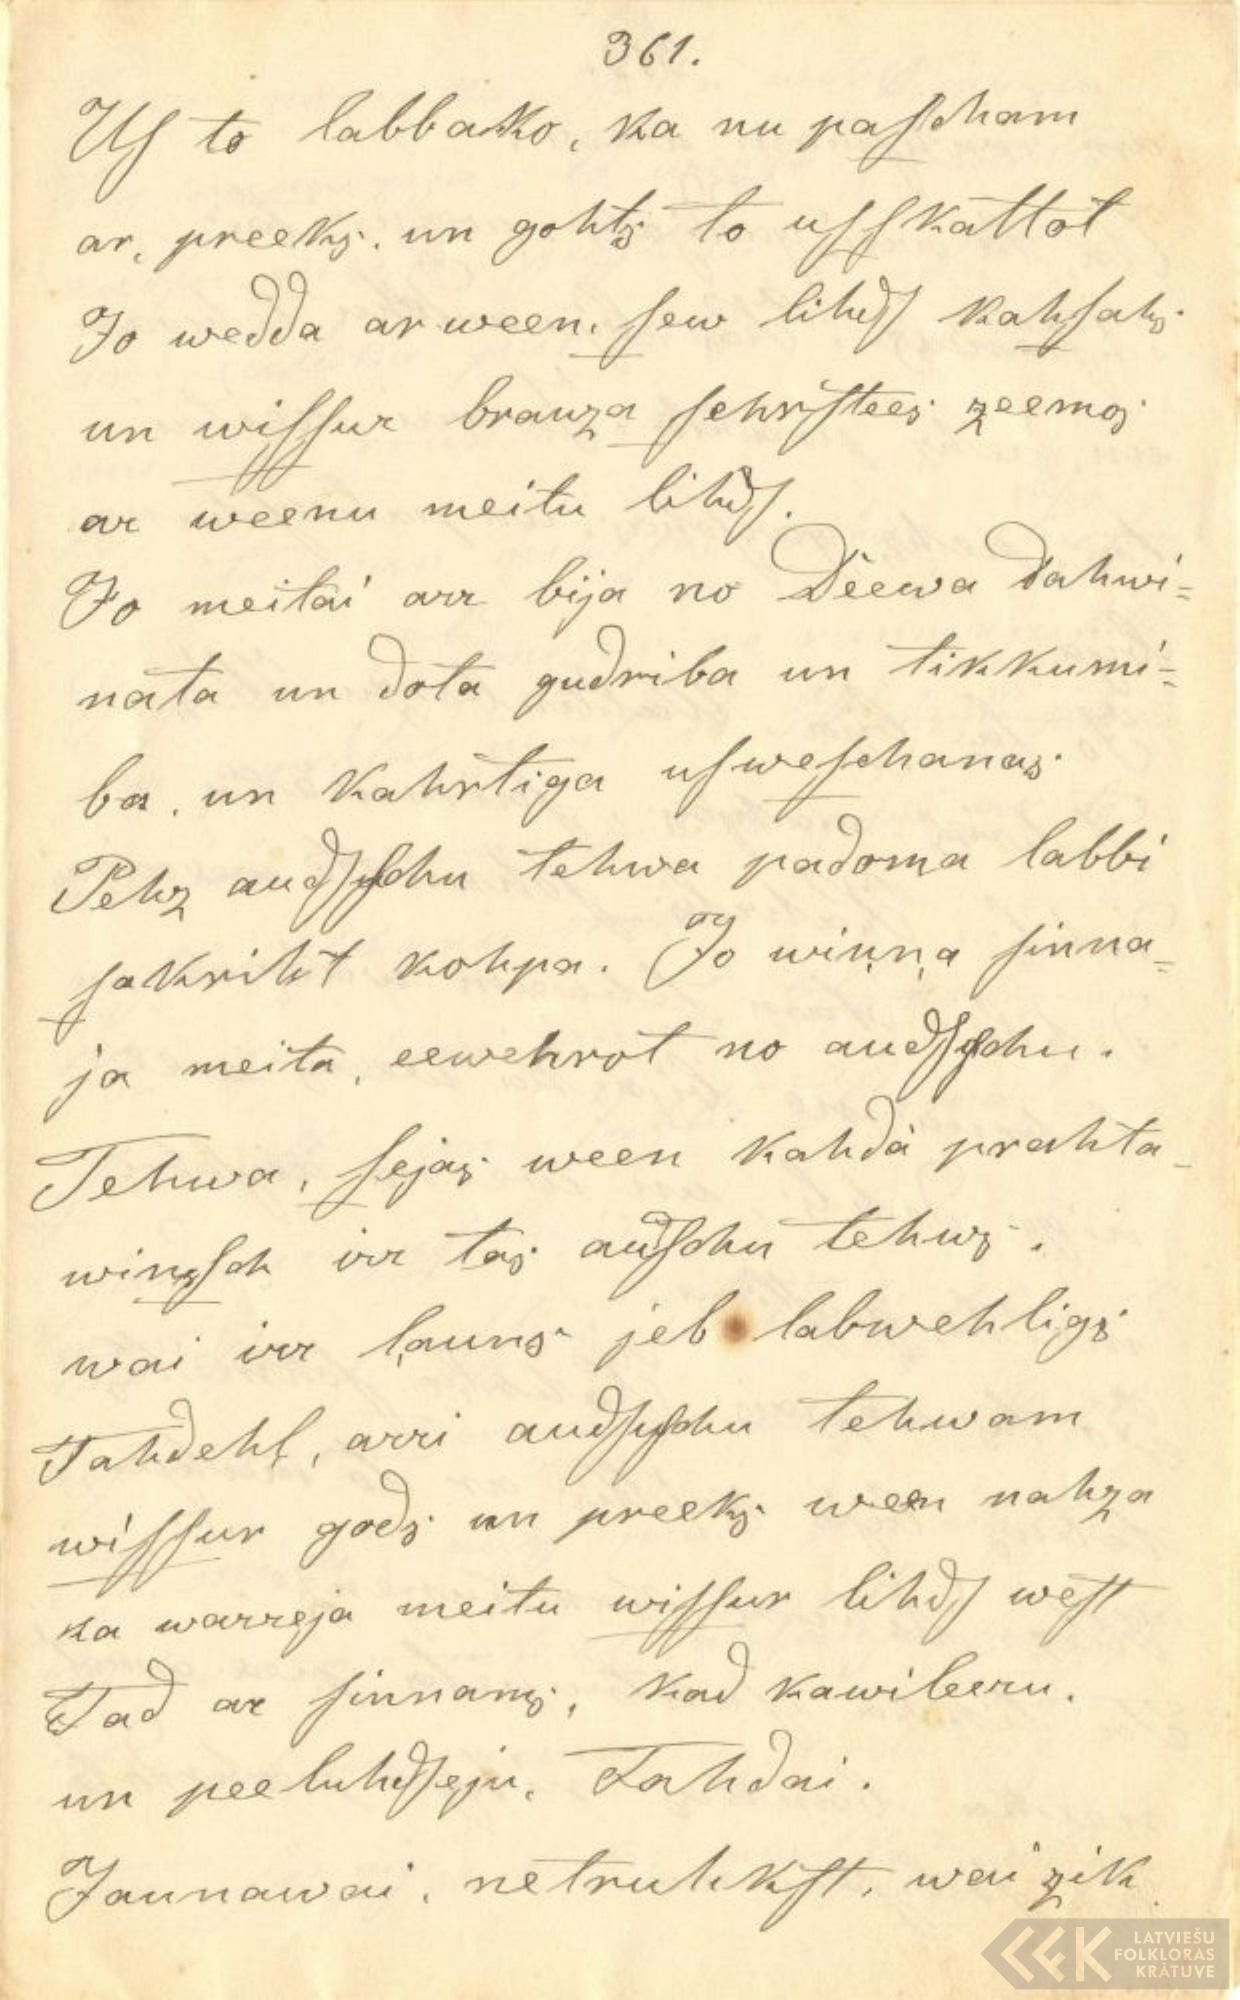 361.
Uſ to labbako, ka nu paſcham
ar, preeks. un gohts to uſſkattot
Jo wedda arween. ſew lihdſ kahſahs
un wiſſur brauza ſehrſtees zeemos
ar weenu meitu lihdſ.
Jo meitai arr bija no Deewa dahwi=
nata un dota gudriba un tikkumi=
ba. un kahrtiga uſweſchanas
Pehz audſchu tehwa padoma labbi
ſakriht kohpa. Jo wiņņa ſinna=
ja meita, eewehrot no audſchu.
Tehwa, ſejas ween kahdà prahta-
winſch irr tas audſchu tehws.
wai irr ļauns jeb labwehligs
Tahdehļ, arri audſchu tehwam
wiſſur gods un preeks ween nahza
ka warreja meitu wiſſur lihdſ weſt
Tad ar ſinnams, kad kawileeru.
un peeluhdſeju, Tahdai.
Jaunawai, netruhkſt, wai zik
LATVIEŠU
FOLKLORAS
KRĀTUVE